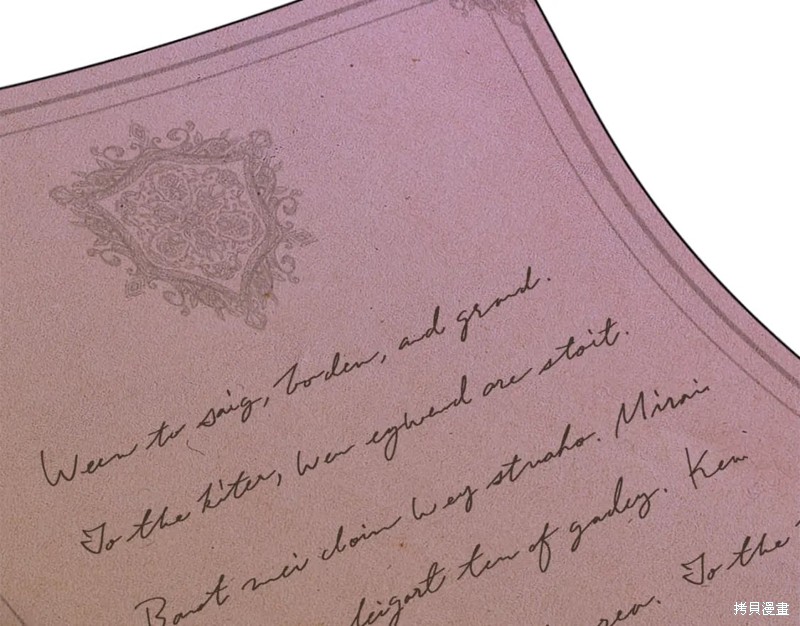 Ween to saig, boden, and grand.
To the kiter, wer eghend are stoit.
Barat mei cloin wey struaho. Mirai
leigart ten of gadey. Ken
rea. To the
拷貝漫畫